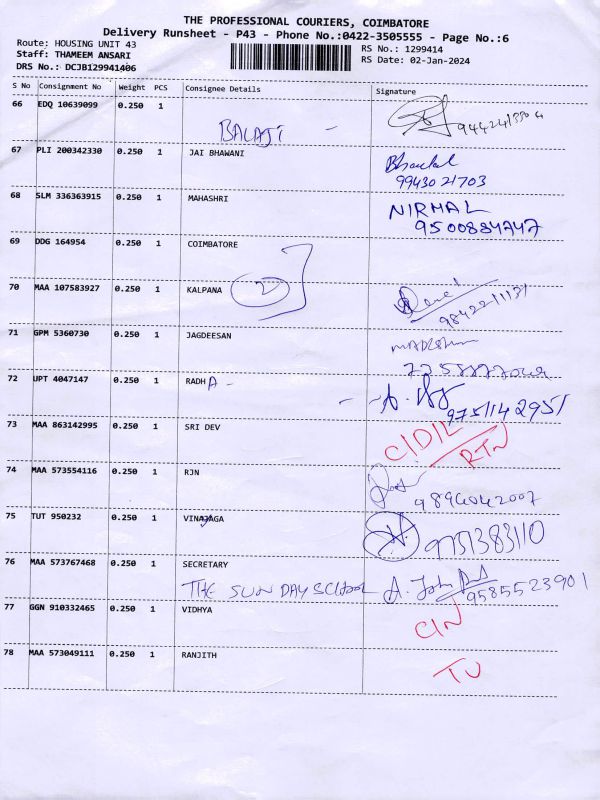 THE PROFESSIONAL COURIERS, COIMBATORE
Delivery Runsheet - P43 - Phone No.:0422-3505555 - Page No.:6
Route: HOUSING UNIT 43 RS No.: 1299414
Staff: THAMEEM ANSARI RS Date: 02-Jan-2024
DRS No.: DCJB129941406
S No Consignment No Weight PCS Consignee Details Signature
66 EDQ 10639099 0.250 1
BALAJI -
67 PLI 200342330 0.250 1 JAI BHAWANI
9943021703
68 SLM 336363915 0.250 1 MAHASHRI NIRMAL
9500884747
69 DDG 164954 0.250 1 COIMBATORE
70 MAA 107583927 0.250 1 KALPANA 2
71 GPM 5360730 0.250 1 JAGDEESAN
72 UPT 4047147 0.250 1 RADHA -
9751142951
73 MAA 863142995 0.250 1 SRI DEV C/D/L
RTN
74 MAA 573554116 0.250 1 RJN
9894042007
75 TUT 950232 0.250 1 VINAJAGA 9751383110
76 MAA 573767468 0.250 1 SECRETARY
THE SUNDAY SCHOOL A. John 9585523901
77 GGN 910332465 0.250 1 VIDHYA CIN
78 MAA 573049111 0.250 1 RANJITH TU